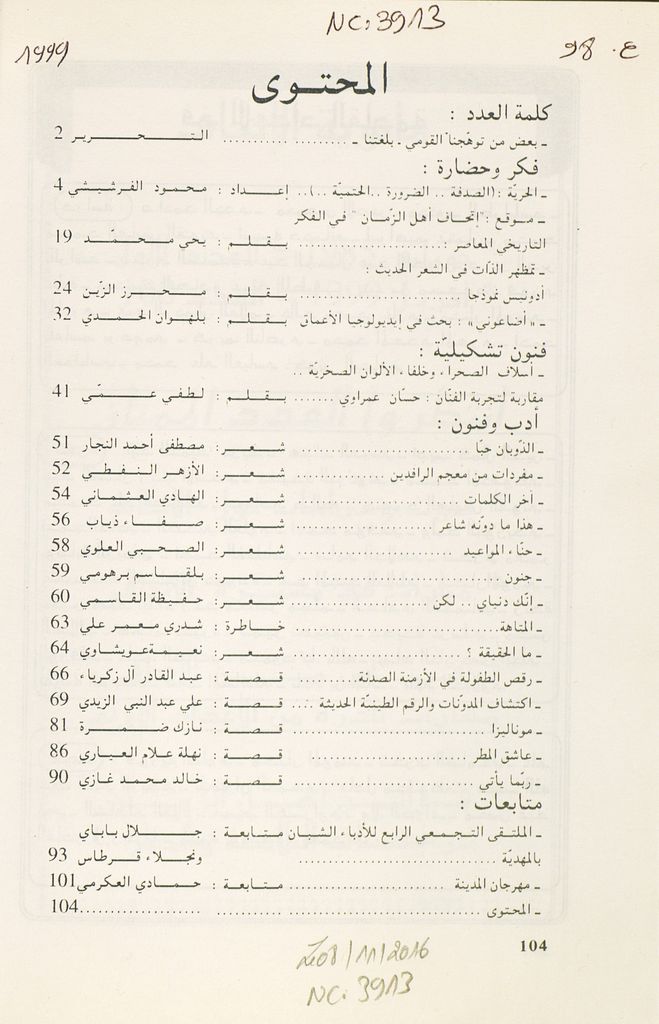 NC: 3913
1999
ع. 98
المحتوى
كلمة العدد :
ـ بعض من توهّجنا القومي ـ بلغتنا ـ .................. التحرير 2
فكر وحضارة :
ـ الحريّة : (الصدفة .. الضرورة .. الحتميّة ..).. إعداد : محمود الفرشيشي 4
ـ موقع : "إتحاف أهل الزّمان" في الفكر
التاريخي المعاصر : .................. بقلم : يحي محمّد 19
ـ تمظهر الذّات في الشعر الحديث :
أدونيس نموذجا .................. بقلم : محرز الزّين 24
ـ « أضاعوني » : بحث في إيديولوجيا الأعمان بقلم : بلهوان الحمدي 32
فنون تشكيليّة :
ـ أسلاف الصحراء وخلفاء الألوان الصخريّة ..
مقاربة لتجربة الفنّان : حسّان عمراوي ....... بقلم : لطفي عمّي 41
أدب وفنون :
ـ الذّوبان حبّا .................. شعر : مصطفى أحمد النجار 51
ـ مفردات من معجم الرافدين .................. شعر : الأزهر النفطي 52
ـ آخر الكلمات .................. شعر : الهادي العثماني 54
ـ هذا ما دوّنه شاعر .................. شعر : صفاء ذياب 56
ـ حنّاء المواعيد .................. شعر : الصحبي العلوي 58
ـ جنون .................. شعر : بلقاسم برهومي 59
ـ إنّك دنياي .. لكن .................. شعر : حفيظة القاسمي 60
ـ المتاهة .................. خاطرة : شذري معمر علي 63
ـ ما الحقيقة ؟ .................. شعر : نعيمة عويشاوي 64
ـ رقص الطفولة في الأزمنة الصدئة .......... قصة : عبد القادر آل زكرياء 66
ـ اكتشاف المدوّنات والرقم الطينيّة الحديثة .... قصة : علي عبد النبي الزيدي 69
ـ موناليزا .................. قصة : نازك ضمرة 81
ـ عاشق المطر .................. قصة : نهلة علام العياري 86
ـ ربّما يأتي .................. قصة : خالد محمد غازي 90
متابعات :
ـ الملتقى التجمعي الرابع للأدباء الشبان متابعة : جلال باباي
بالمهديّة .................. ونجلاء قرطاس 93
ـ مهرجان المدينة .................. متابعة : حمادي العكرمي 101
ـ المحتوى .................. 104
104
08/11/2016
NC: 3913